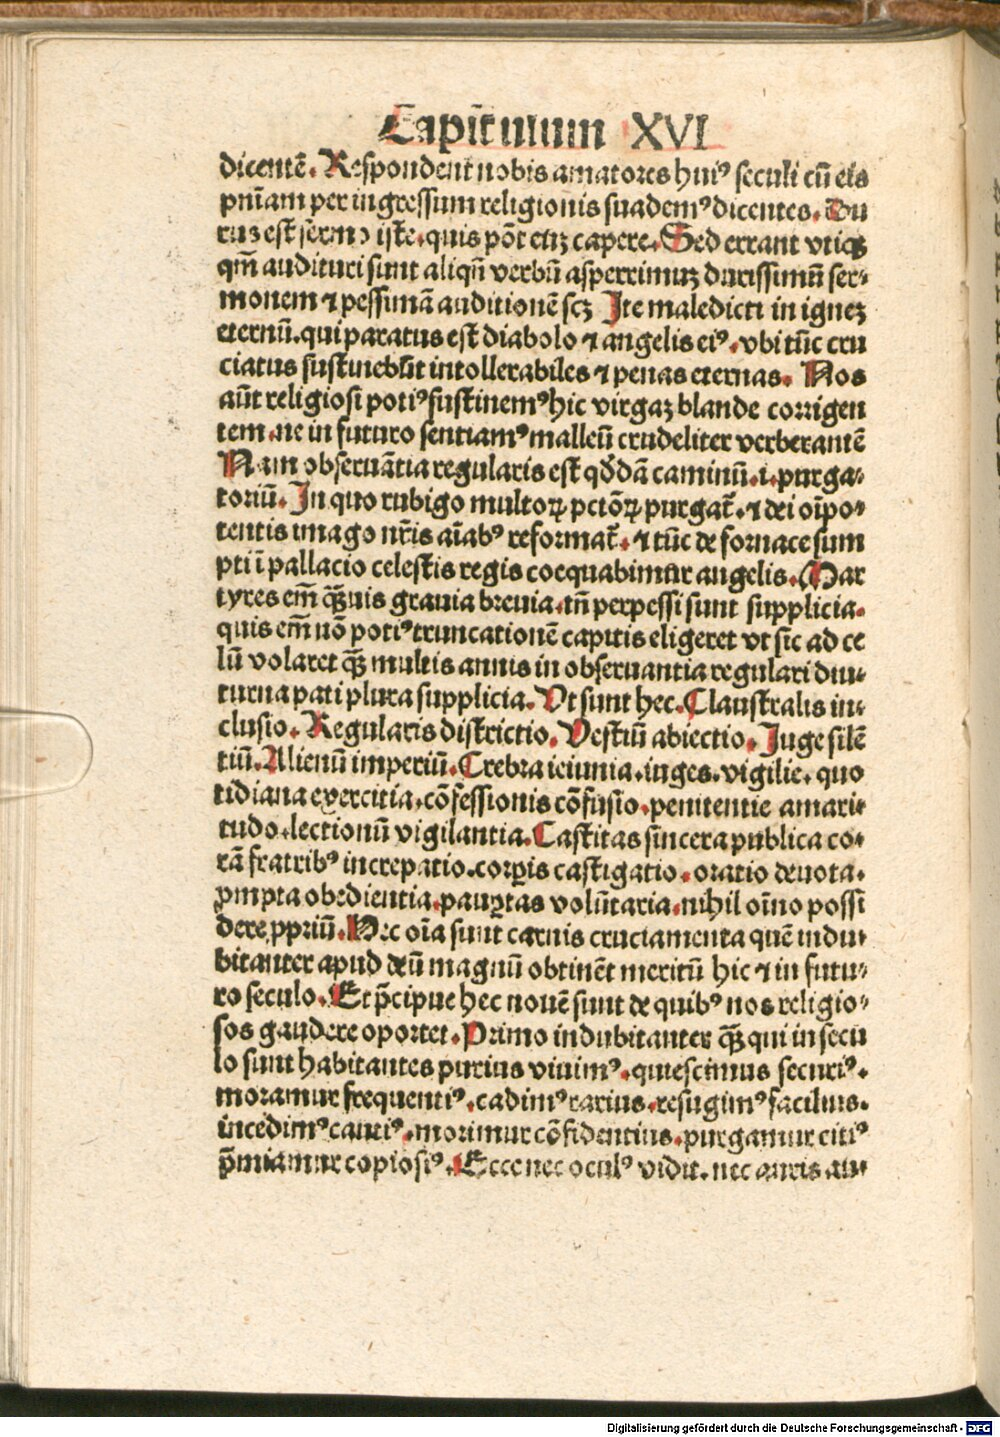 Capitulum XVI
dicentē. Respondent nobis amatores huiꝰ seculi cū eis
pniam per ingressum religionis suademꝰ dicentes. Du
rus est sermo iste. quis pōt eūꝫ capere. Sed errant vtiqꝫ
qm̄ audituri sunt aliqn̄ verbū asperrimuꝫ durissimū ser⸗
monem ⁊ pessimā auditionē scꝫ Ite maledicti in igneꝫ
eternū. qui paratus est diabolo ⁊ angelis eiꝰ. vbi tūc cru
ciatus sustinebūt intollerabiles ⁊ penas eternas. Nos
aūt religiosi potiꝰ sustinemꝰ hic virgaꝫ blande corrigen
tem. ne in futuro sentiamꝰ malleū crudeliter verberantē
Nam obseruātia regularis est qd̄dā caminū .i. purga⸗
toriū. In quo rubigo multoꝝ pctōꝝ purgat̄. ⁊ dei oīpo⸗
tentis imago nr̄is aīabꝰ reformat̄. ⁊ tūc de fornace sum
pti ī pallacio celestis regis coequabimur angelis. Mar
tyres em̄ qꝫuis grauia breuia. tn̄ perpessi sunt supplicia.
quis em̄ nō potiꝰ truncationē capitis eligeret vt sic ad ce
lū volaret qꝫ multis annis in obseruantia regulari diu⸗
turna pati plura supplicia. Vt sunt hec. Claustralis in⸗
clusio. Regularis districtio. Vestiū abiectio. Juge silē
tiū. Alienū imperiū. Crebra ieiunia. iuges. vigilie. quo
tidiana exercitia. cōfessionis cōfusio. penitentie amari⸗
tudo. lectionū vigilantia. Castitas sincera publica co⸗
rā fratribꝰ increpatio. corꝑis castigatio. oratio deuota.
ꝓmpta obedientia. pauꝑtas volūtaria. nihil oīno possi
dere ꝓpriū. Hec oīa sunt carnis cruciamenta quē indu⸗
bitanter apud deū magnū obtinēt meritū hic ⁊ in futu⸗
ro seculo. Et p̄cipue hec nouē sunt de quibꝰ nos religio⸗
sos gaudere oportet. Primo indubitanter qꝫ qui in secu
lo sunt habitantes purius viuimꝰ. quiescimus securiꝰ.
moramur frequentiꝰ. cadimꝰ rarius. resugimꝰ facilius.
incedimꝰ cautiꝰ. morimur cōfidentius. purgamur citiꝰ
p̄miamur copiosiꝰ. Ecce nec oculꝰ vidit. nec auris au⸗
Digitalisierung gefördert durch die Deutsche Forschungsgemeinschaft - DFG